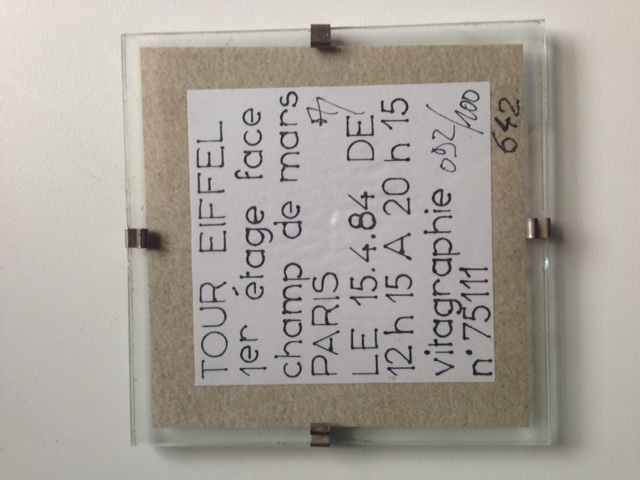 TOUR EIFFEL
1er étage face
champ de mars
PARIS
LE 15.4.84 DE
12 h 15 A 20 h 15
vitagraphie 092/100
n° 75111
642